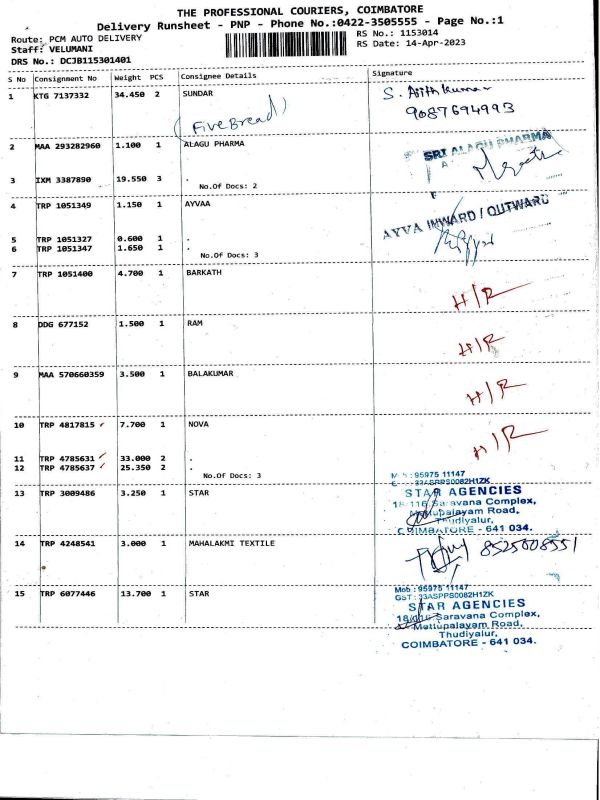 THE PROFESSIONAL COURIERS, COIMBATORE
Delivery Runsheet - PNP - Phone No.:0422-3505555 - Page No.:1
Route: PCM AUTO DELIVERY RS No.: 1153014
Staff: VELUMANI RS Date: 14-Apr-2023
DRS No.: DCJB115301401
S No Consignment No Weight PCS Consignee Details Signature
1 KTG 7137332 34.450 2 SUNDAR S. Ajith Kumar
(Five Bread) 9087694993
2 MAA 293282960 1.100 1 ALAGU PHARMA SRI ALAGU PHARMA
3 IXM 3387890 19.550 3 .
No.Of Docs: 2
4 TRP 1051349 1.150 1 AYVAA AYVA INWARD / OUTWARD
5 TRP 1051327 0.600 1 .
6 TRP 1051347 1.650 1 .
No.Of Docs: 3
7 TRP 1051400 4.700 1 BARKATH H/R
8 DDG 677152 1.500 1 RAM H/R
9 MAA 570660359 3.500 1 BALAKUMAR H/R
10 TRP 4817815 ✓ 7.700 1 NOVA H/R
11 TRP 4785631 ✓ 33.000 2 .
12 TRP 4785637 ✓ 25.350 2 .
No.Of Docs: 3
13 TRP 3009486 3.250 1 STAR
: 95975 11147
33ASPPS0082H1ZK
STAR AGENCIES
18/116 Saravana Complex,
Mettupalayam Road,
Thudiyalur,
COIMBATORE - 641 034.
14 TRP 4248541 3.000 1 MAHALAKMI TEXTILE 8525008551
15 TRP 6077446 13.700 1 STAR
Mob : 95975 11147
GST : 33ASPPS0082H1ZK
STAR AGENCIES
18/116 Saravana Complex,
Mettupalayam Road,
Thudiyalur,
COIMBATORE - 641 034.